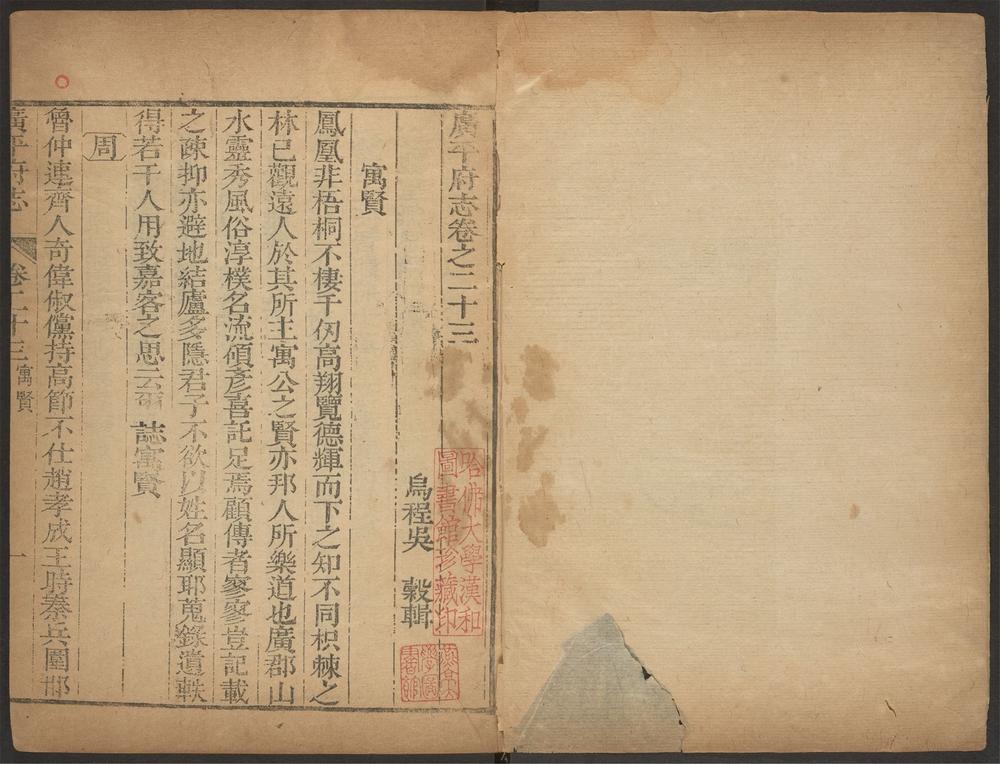 廣平府志卷之二十三
烏程吳 穀輯
寓賢
鳳凰非梧桐不棲千仞高翔覽德輝而下之知不同枳棘之
林已觀遠人於其所主寓公之賢亦邦人所樂道也廣郡山
水靈秀風俗淳樸名流碩彥喜託足焉顧傳者寥寥豈記載
之疎抑亦避地結廬多隱君子不欲以姓名顯耶蒐錄遺軼
得若干人用致嘉客之思云爾誌寓賢
周
魯仲連齊人奇偉俶儻持高節不仕趙孝成王時秦兵圍邯
廣平府志 卷二十三 寓賢 一
哈佛大學漢和
圖書館珍藏印